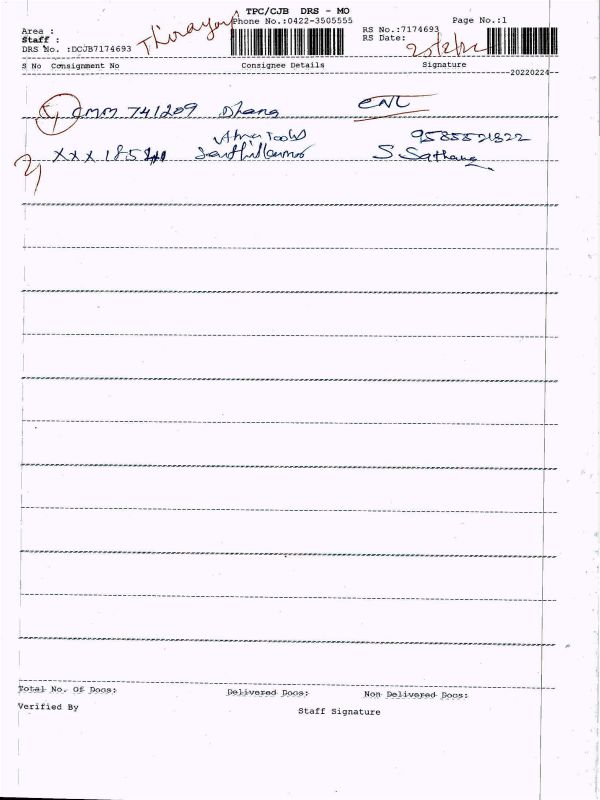 TPC/CJB DRS - MO
Area :
Phone No.:0422-3505555
Page No.:1
Staff :
RS No.:7174693
DRS No. :DCJB7174693
RS Date:
S No Consignment No Consignee Details Signature
20220224
1) CMM 741209 Dhana CNL
Tools 9585521822
2) XXX 185 S. Sathana
Total No. Of Docs: Delivered Docs: Non Delivered Docs:
Verified By Staff Signature